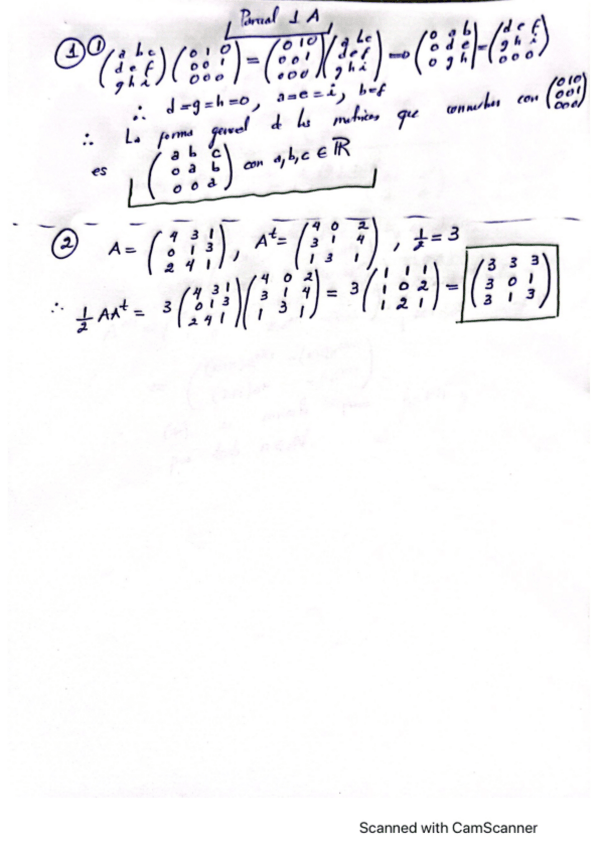 Parcial 1 A
① ① (a b c / d e f / g h i) (0 1 0 / 0 0 1 / 0 0 0) = (0 1 0 / 0 0 1 / 0 0 0) (a b c / d e f / g h i) → (0 a b / 0 d e / 0 g h) = (d e f / g h i / 0 0 0)
∴ d=g=h=0, a=e=i, b=f
∴ La forma general d las matrices que conmutan con (0 1 0 / 0 0 1 / 0 0 0)
es (a b c / 0 a b / 0 0 a) con a,b,c ∈ ℝ
② A = (4 3 1 / 0 1 3 / 2 4 1), Aᵗ = (4 0 2 / 3 1 4 / 1 3 1), 1/2 = 3
∴ 1/2 AAᵗ = 3 (4 3 1 / 0 1 3 / 2 4 1) (4 0 2 / 3 1 4 / 1 3 1) = 3 (1 1 1 / 1 0 2 / 1 2 1) = (3 3 3 / 3 0 1 / 3 1 3)
Scanned with CamScanner